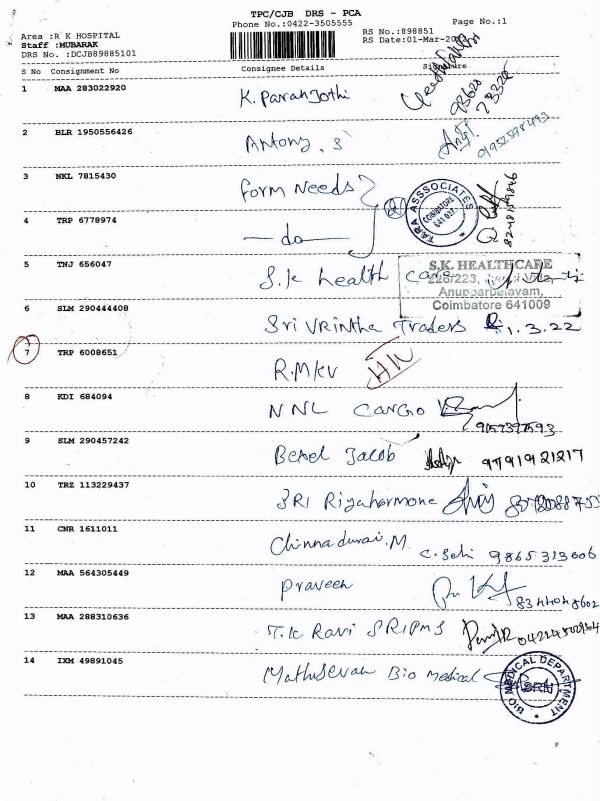 TPC/CJB DRS - PCA
Phone No.:0422-3505555
Page No.:1
Area :R K HOSPITAL
Staff :MUBARAK
DRS No. :DCJB89885101
RS No.:898851
RS Date:01-Mar-20
S No Consignment No Consignee Details Signature
1 MAA 283022920 K. Paranjothi
93620
73320
2 BLR 1950556426 Antony. S
3 NKL 7815430 Form Needs
4 TRP 6778974 —do—
TARA ASSSOCIATES
COIMBATORE
5 TNJ 656047 S.k health care
S.K. HEALTHCARE
226/223,
Anupparpalayam,
Coimbatore 641009
6 SLM 290444408 Sri Vrintha Traders 1.3.22
7 TRP 6008651 R.MKV
8 KDI 684094 NNL CARGO
9 SLM 290457242 Jacob 9791921217
10 TRZ 113229437 SRI Riyahormone
11 CNR 1611011 Chinnadurai.M 9865313606
12 MAA 564305449 Praveen
13 MAA 288310636 T.K Ravi SRIPMS
14 IXM 49891045 Mathusevan Bio Medical
BIO MEDICAL DEPARTMENT